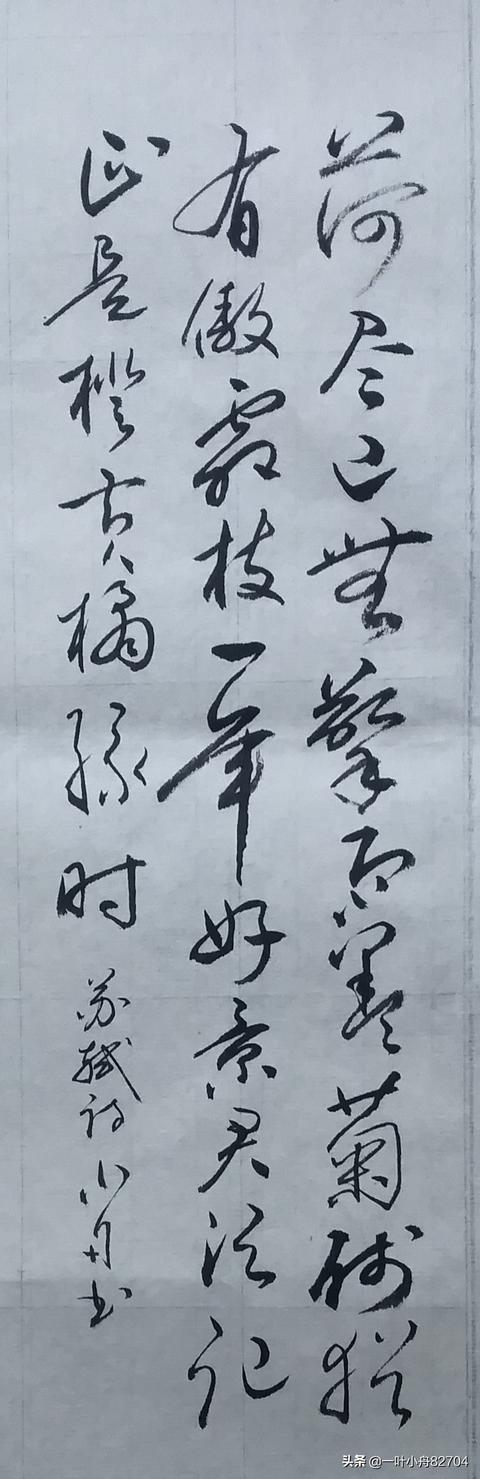 荷尽已無擎雨盖菊残犹
有傲霜枝一年好景君须记
正是橙黄橘绿时 苏轼诗小舟书
头条 @一叶小舟82704